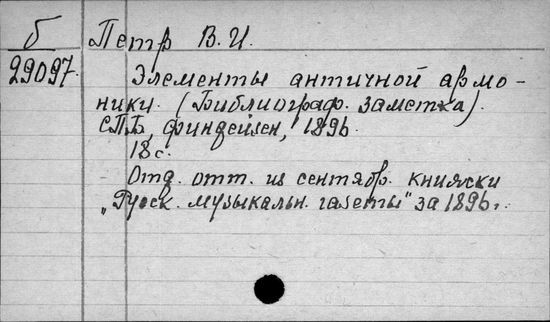 б
29097.
Петр В. И.
Элементы античной армо-
ники. (Библиограф. заметка).
СПБ, Финдейзен, 1896.
18 с.
Отд. отт. из сентябр. книжски
„Русск. музыкальн. газеты" за 1896 г.